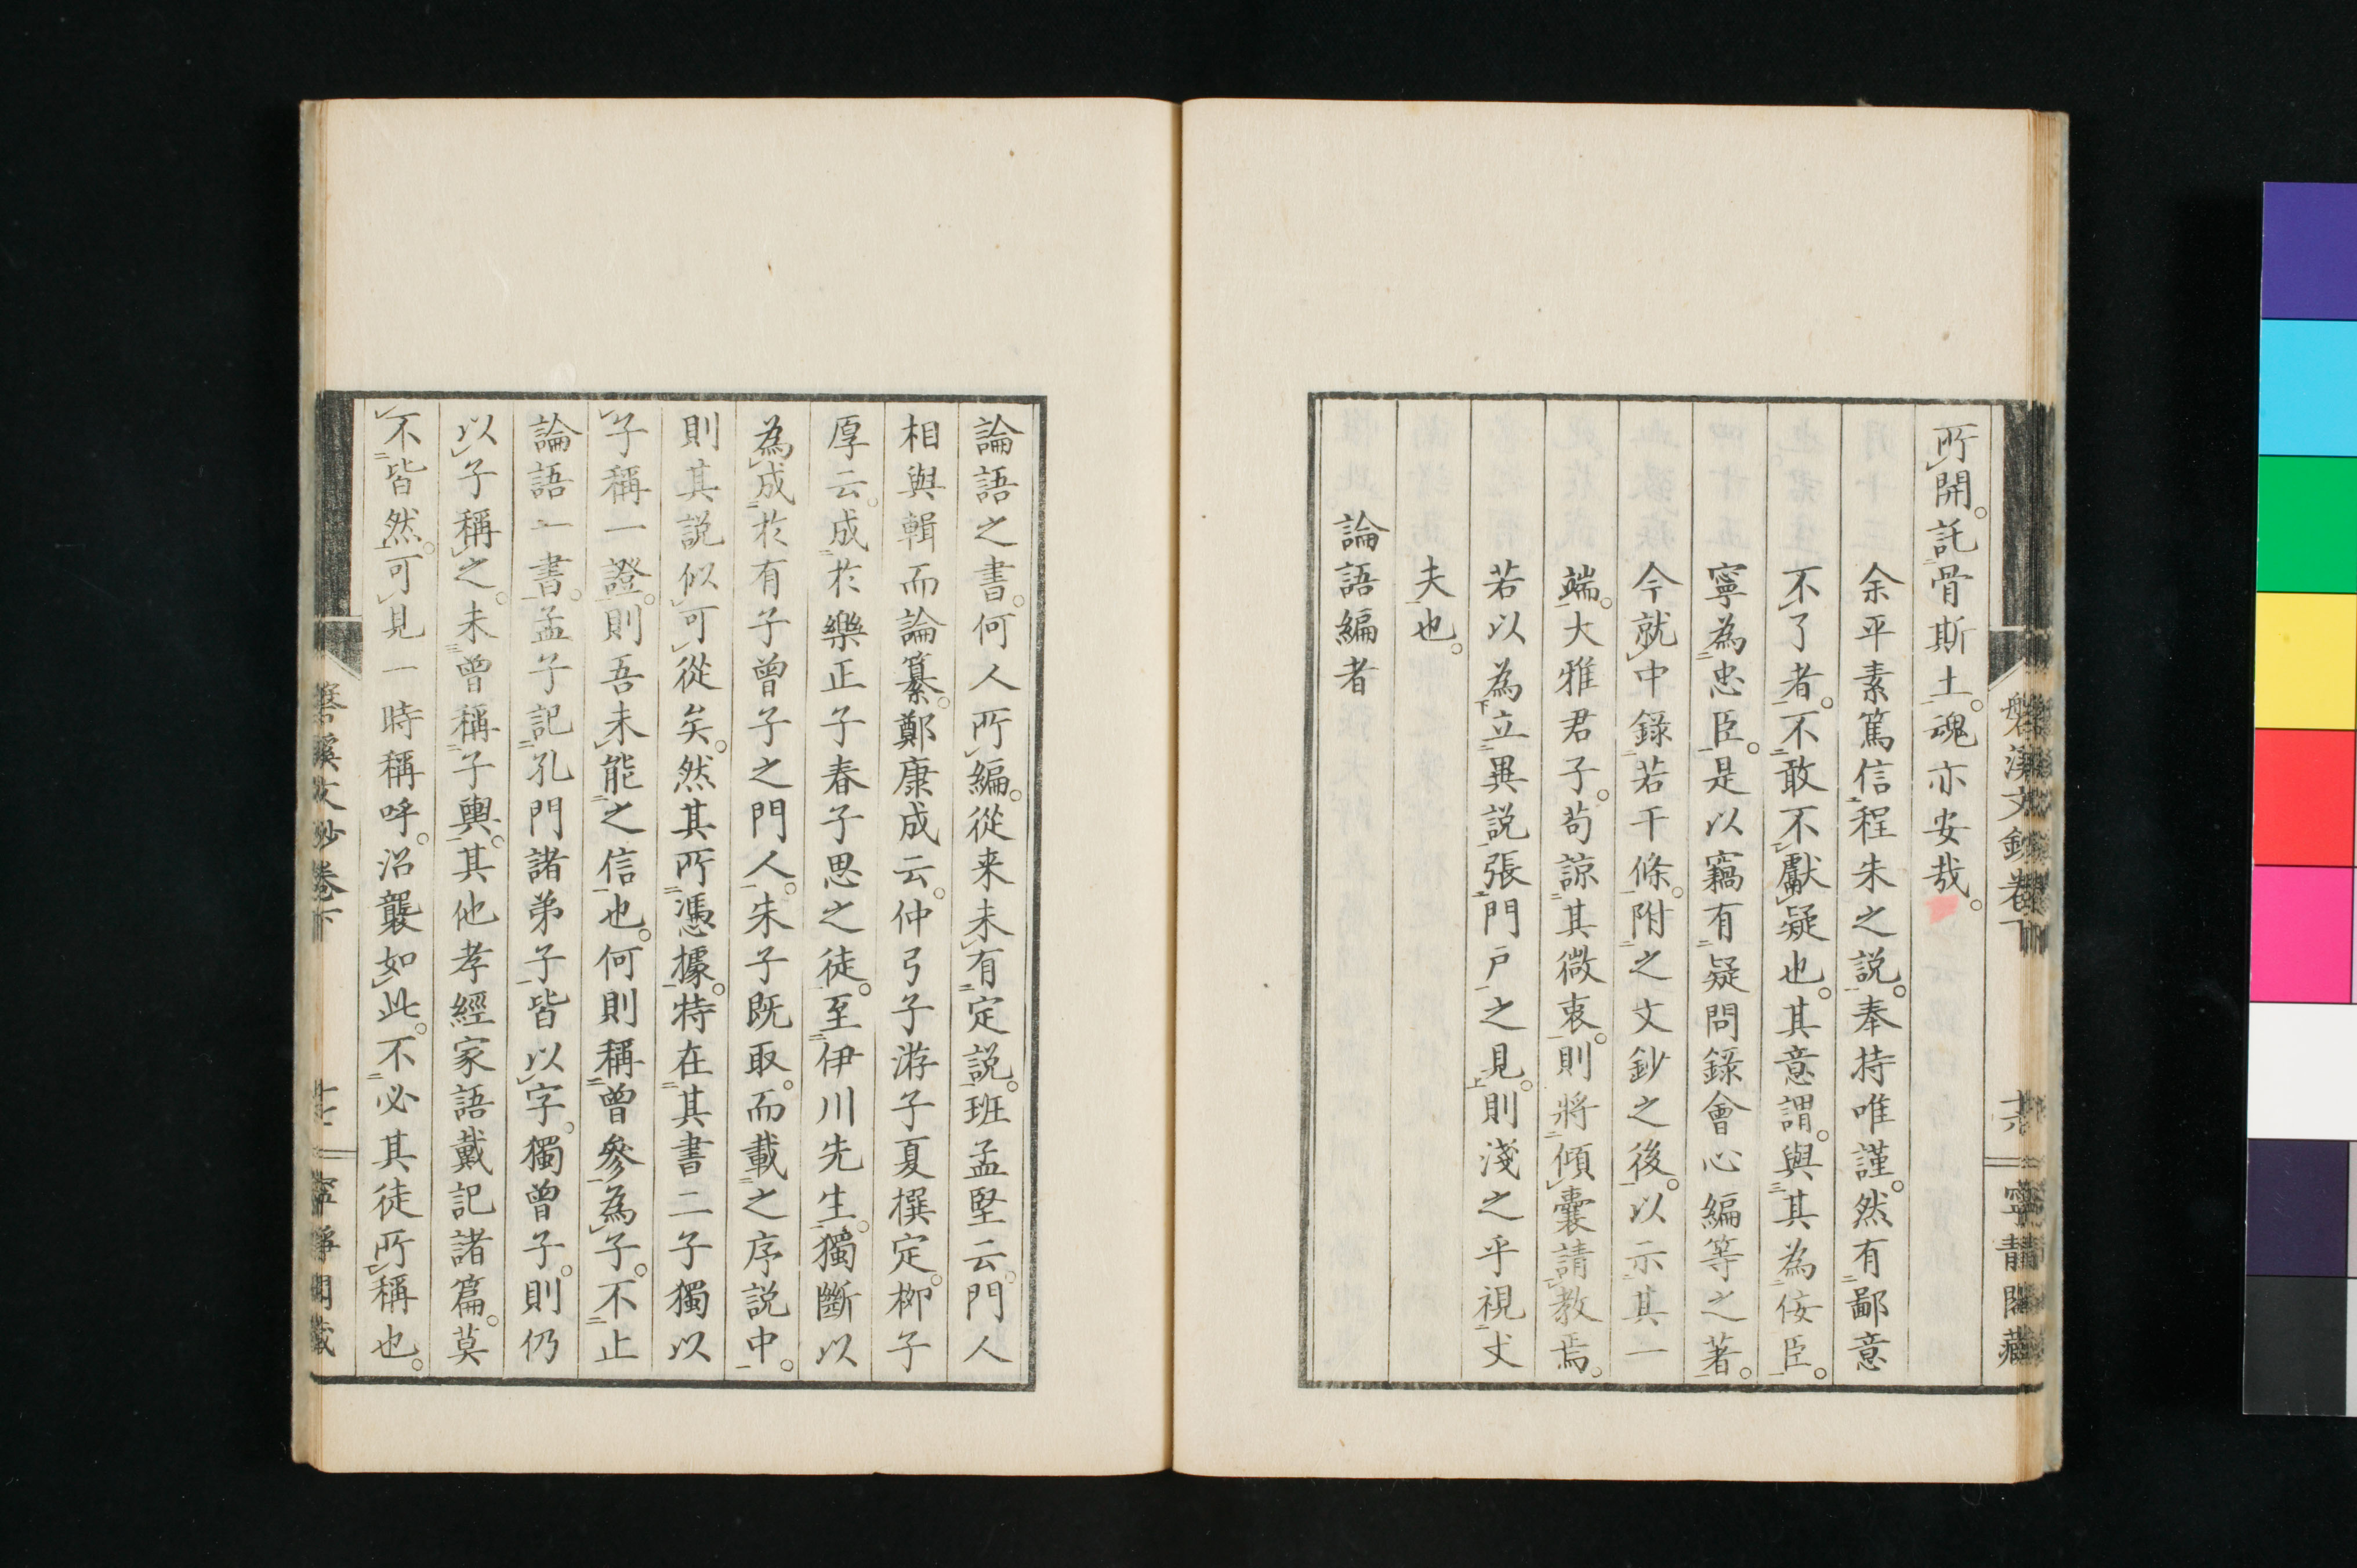 所開。託骨斯土。魂亦安哉。
余平素篤信程朱之説。奉持唯謹。然有鄙意
不了者。不敢不獻疑也。其意謂。與其為佞臣。
寧為忠臣。是以竊有疑問錄會心編等之著。
今就中録若干條。附之文鈔之後。以示其一
端。大雅君子。苟諒其微衷。則將傾囊請教焉。
若以為立異説張門戸之見。則淺之乎視丈
夫也。
論語編者
論語之書。何人所編。從来未有定説。班孟堅云。門人
相與輯而論纂。鄭康成云。仲弓子游子夏撰定。柳子
厚云。成於樂正子春子思之徒。至伊川先生。獨斷以
為成於有子曾子之門人。朱子既取。而載之序説中。
則其説似可從矣。然其所憑據。特在其書二子獨以
子稱一證。則吾未能之信也。何則稱曾參為子。不止
論語一書。孟子記孔門諸弟子皆以字。獨曾子。則仍
以子稱之。未曾稱子輿。其他孝經家語戴記諸篇。莫
不皆然。可見一時稱呼。沿襲如此。不必其徒所稱也。
磐溪文鈔卷下
寧靜閣藏